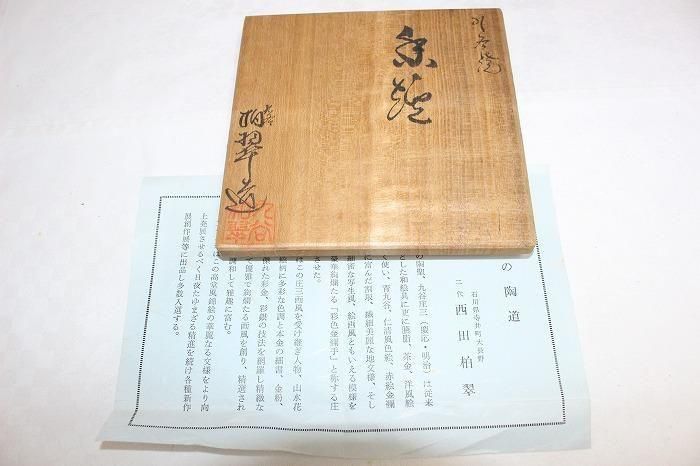 九谷焼
香爐
九谷
柏翠造
九谷
柏翠
の陶道
石川県寺井町大長野
二代 西田柏翠
の陶聖、九谷庄三(慶応・明治)は従来
とした和絵具に更に臙脂、茶金、洋風絵
く使い、青九谷、仁清風色絵、赤絵金襴
に富んだ割取、繊細美麗な地文様、そし
細密な写生風、絵画風ともいえる模様を
豪華絢爛たる「彩色金襴手」と称する庄
させた。
はこの庄三画風を受け継ぎ人物、山水花
絵柄に多彩な色調と本金の細書、金粉、
優れた彩金、彩銀の技法を網羅し精緻な
て優雅で絢爛たる画風を創り、精選され
調和して雅趣に富む。
はこの高堂風錦絵の華麗なる文様をより向
上発展させるべく日夜たゆまざる精進を続け各種新作
展創作展等に出品し多数入選する。